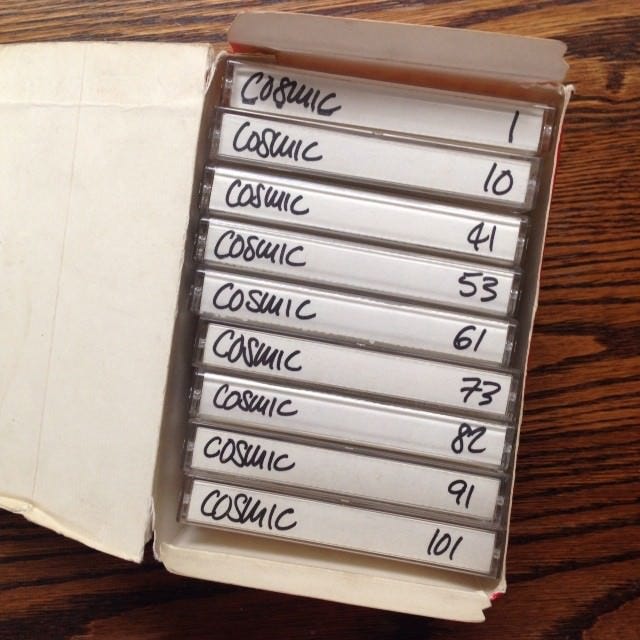 COSMIC 1
COSMIC 10
COSMIC 41
COSMIC 53
COSMIC 61
COSMIC 73
COSMIC 82
COSMIC 91
COSMIC 101